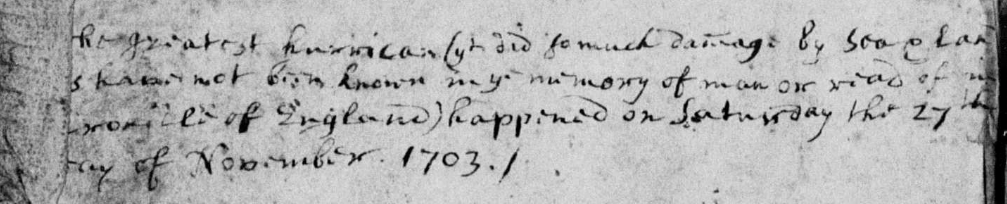 he greatest hurrican (yt did so much damage by Sea & Lan
s have not been known in ye memory of man or read of in
ronicle of England) happened on Saturday the 27th
ay of November. 1703./